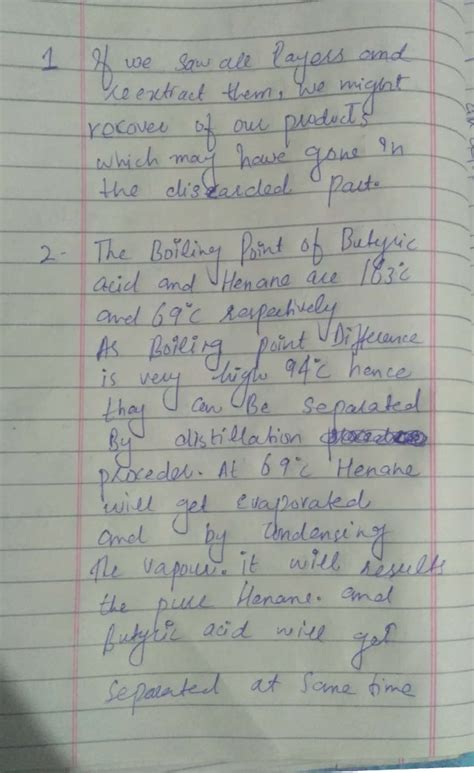 1 If we saw all layers and
reextract them, we might
rocover of our products
which may have gone in
the discarded part.
2- The Boiling Point of Butyric
acid and Henane are 163°c
and 69°c respectively
As Boiling point Difference
is very high 94°c hence
they can Be separated
By distillation
proceder. At 69°c Henane
will get evaporated
and by condensing
the vapour. it will results
the pure Henane. and
Butyric acid will get
separated at same time